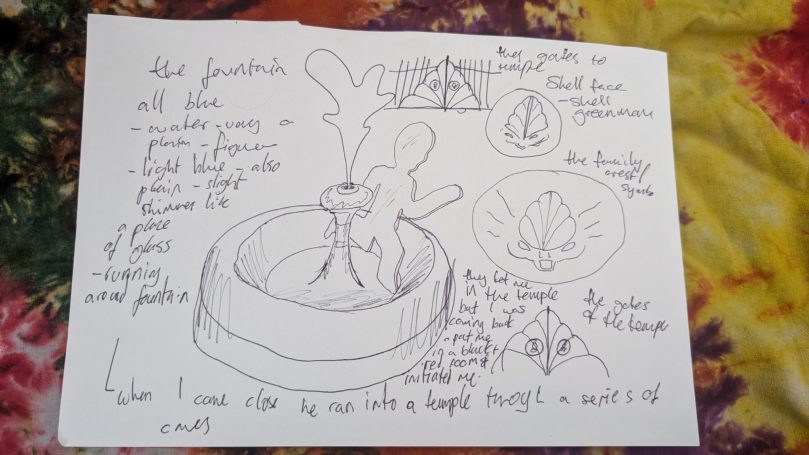 the fountain
all blue
- water - very a
plain - figure
- light blue - also
plain - slight
shimmer like
a place
of glass
- running
around fountain
the gates to
temple
Shell face
- shell
greenman
the family
crest /
symb
they let me
in the temple
but I was
coming back
a put me
in a black +
red room &
initiated me.
the gates
of the temple
when I came close he ran into a temple throgh a series of
caves